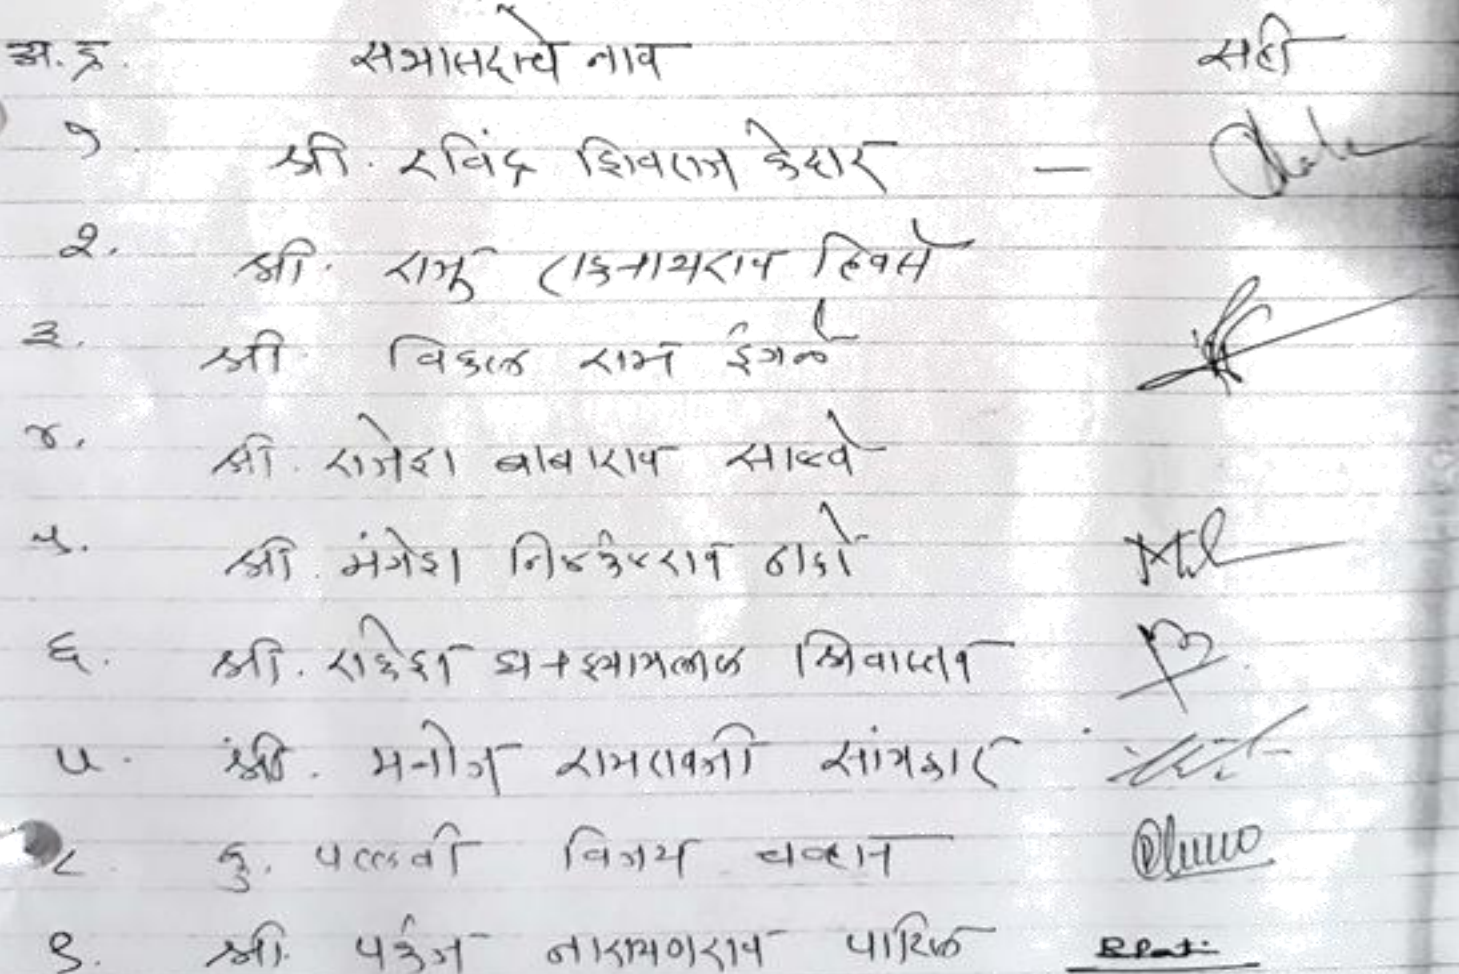 अ.क्र. सभासदाचे नाव सही
१. श्री. रविंद्र शिवराज केदार —
२. श्री. राजू
३. श्री. विठ्ठल राम इंगळे
४. श्री. राजेश बाबाराव साळवे
५. श्री. मंगेश निळकंठराव
६. श्री. राकेश घनश्यामलाल श्रिवास्तव
७. श्री. मनोज रामरावजी
८. कु. पल्लवी विजय चव्हाण
९. श्री. पकंज नारायणराव पाटिल